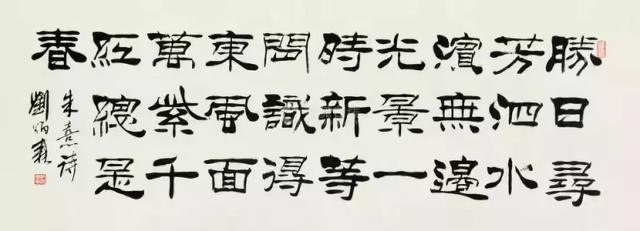 勝日尋
芳泗水
濱無邊
光景一
時新等
閒識得
東風面
萬紫千
紅總是
春
朱熹詩
劉炳森